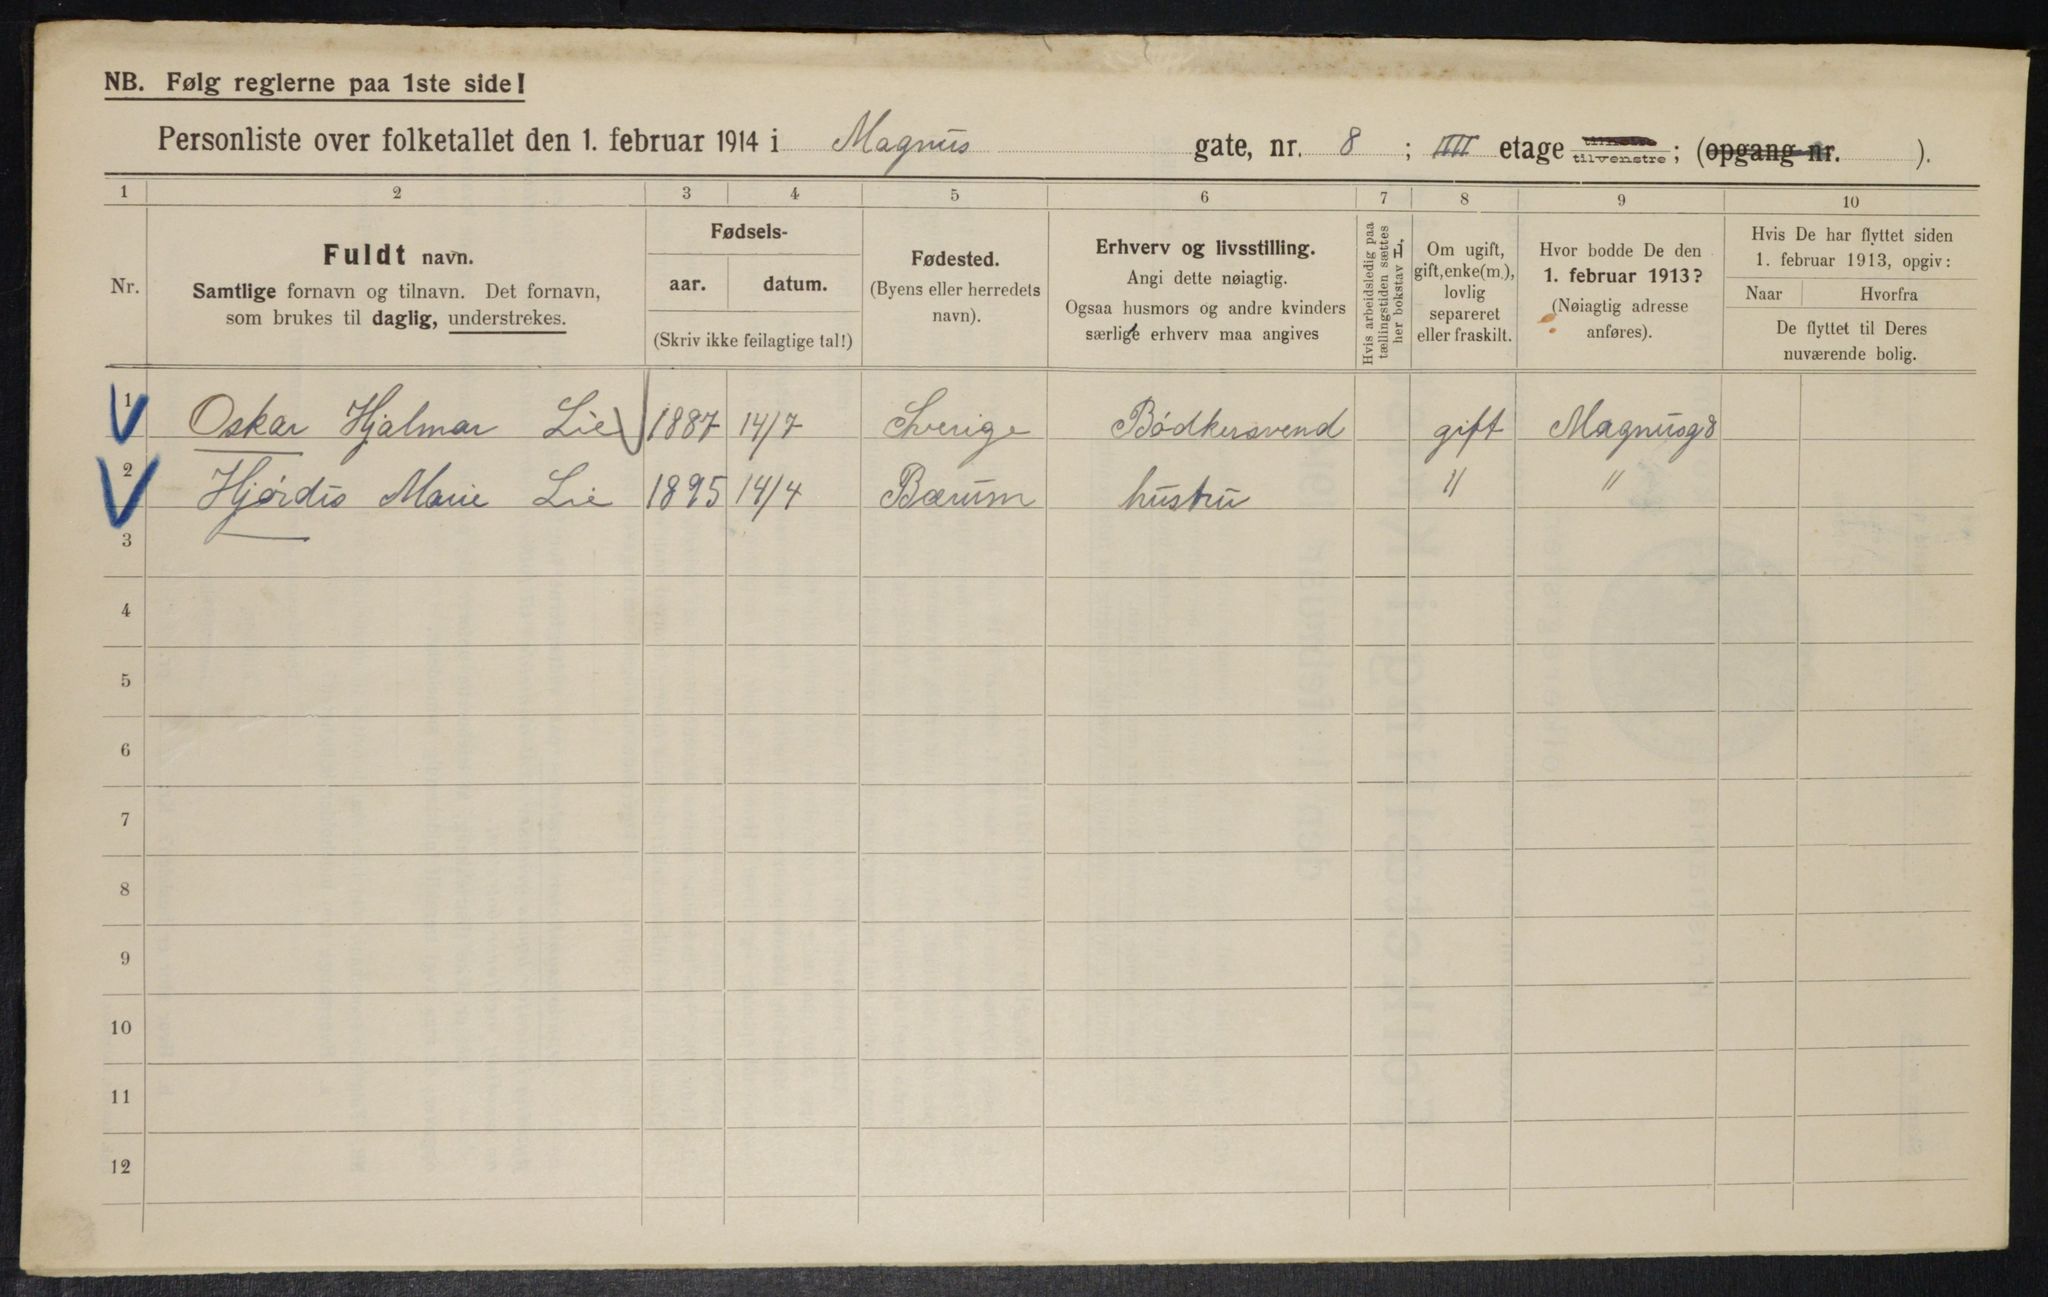 NB. Følg reglerne paa 1ste side!
Personliste over folketallet den 1. februar 1914 i Magnus gate, nr. 8 ; IIII etage tilhøire tilvenstre ; (opgang nr. ).
1 2 3 4 5 6 7 8 9 10
Nr.
Fuldt navn.
Samtlige fornavn og tilnavn. Det fornavn,
som brukes til daglig, understrekes.
Fødsels-
aar. datum.
(Skriv ikke feilagtige tal!)
Fødested.
(Byens eller herredets
navn).
Erhverv og livsstilling.
Angi dette nøiagtig.
Ogsaa husmors og andre kvinders
særlige erhverv maa angives
Hvis arbeidsledig paa
tællingstiden sættes
her bokstav L.
Om ugift,
gift, enke(m.),
lovlig
separeret
eller fraskilt.
Hvor bodde De den
1. februar 1913?
(Nøiagtig adresse
anføres).
Hvis De har flyttet siden
1. februar 1913, opgiv:
Naar Hvorfra
De flyttet til Deres
nuværende bolig.
1 Oskar Hjalmar Lie 1887 14/7 Sverige Bödkersvend gift Magnusg 8
2 Hjørdis Marie Lie 1895 14/4 Bærum hustru " "
3
4
5
6
7
8
9
10
11
12